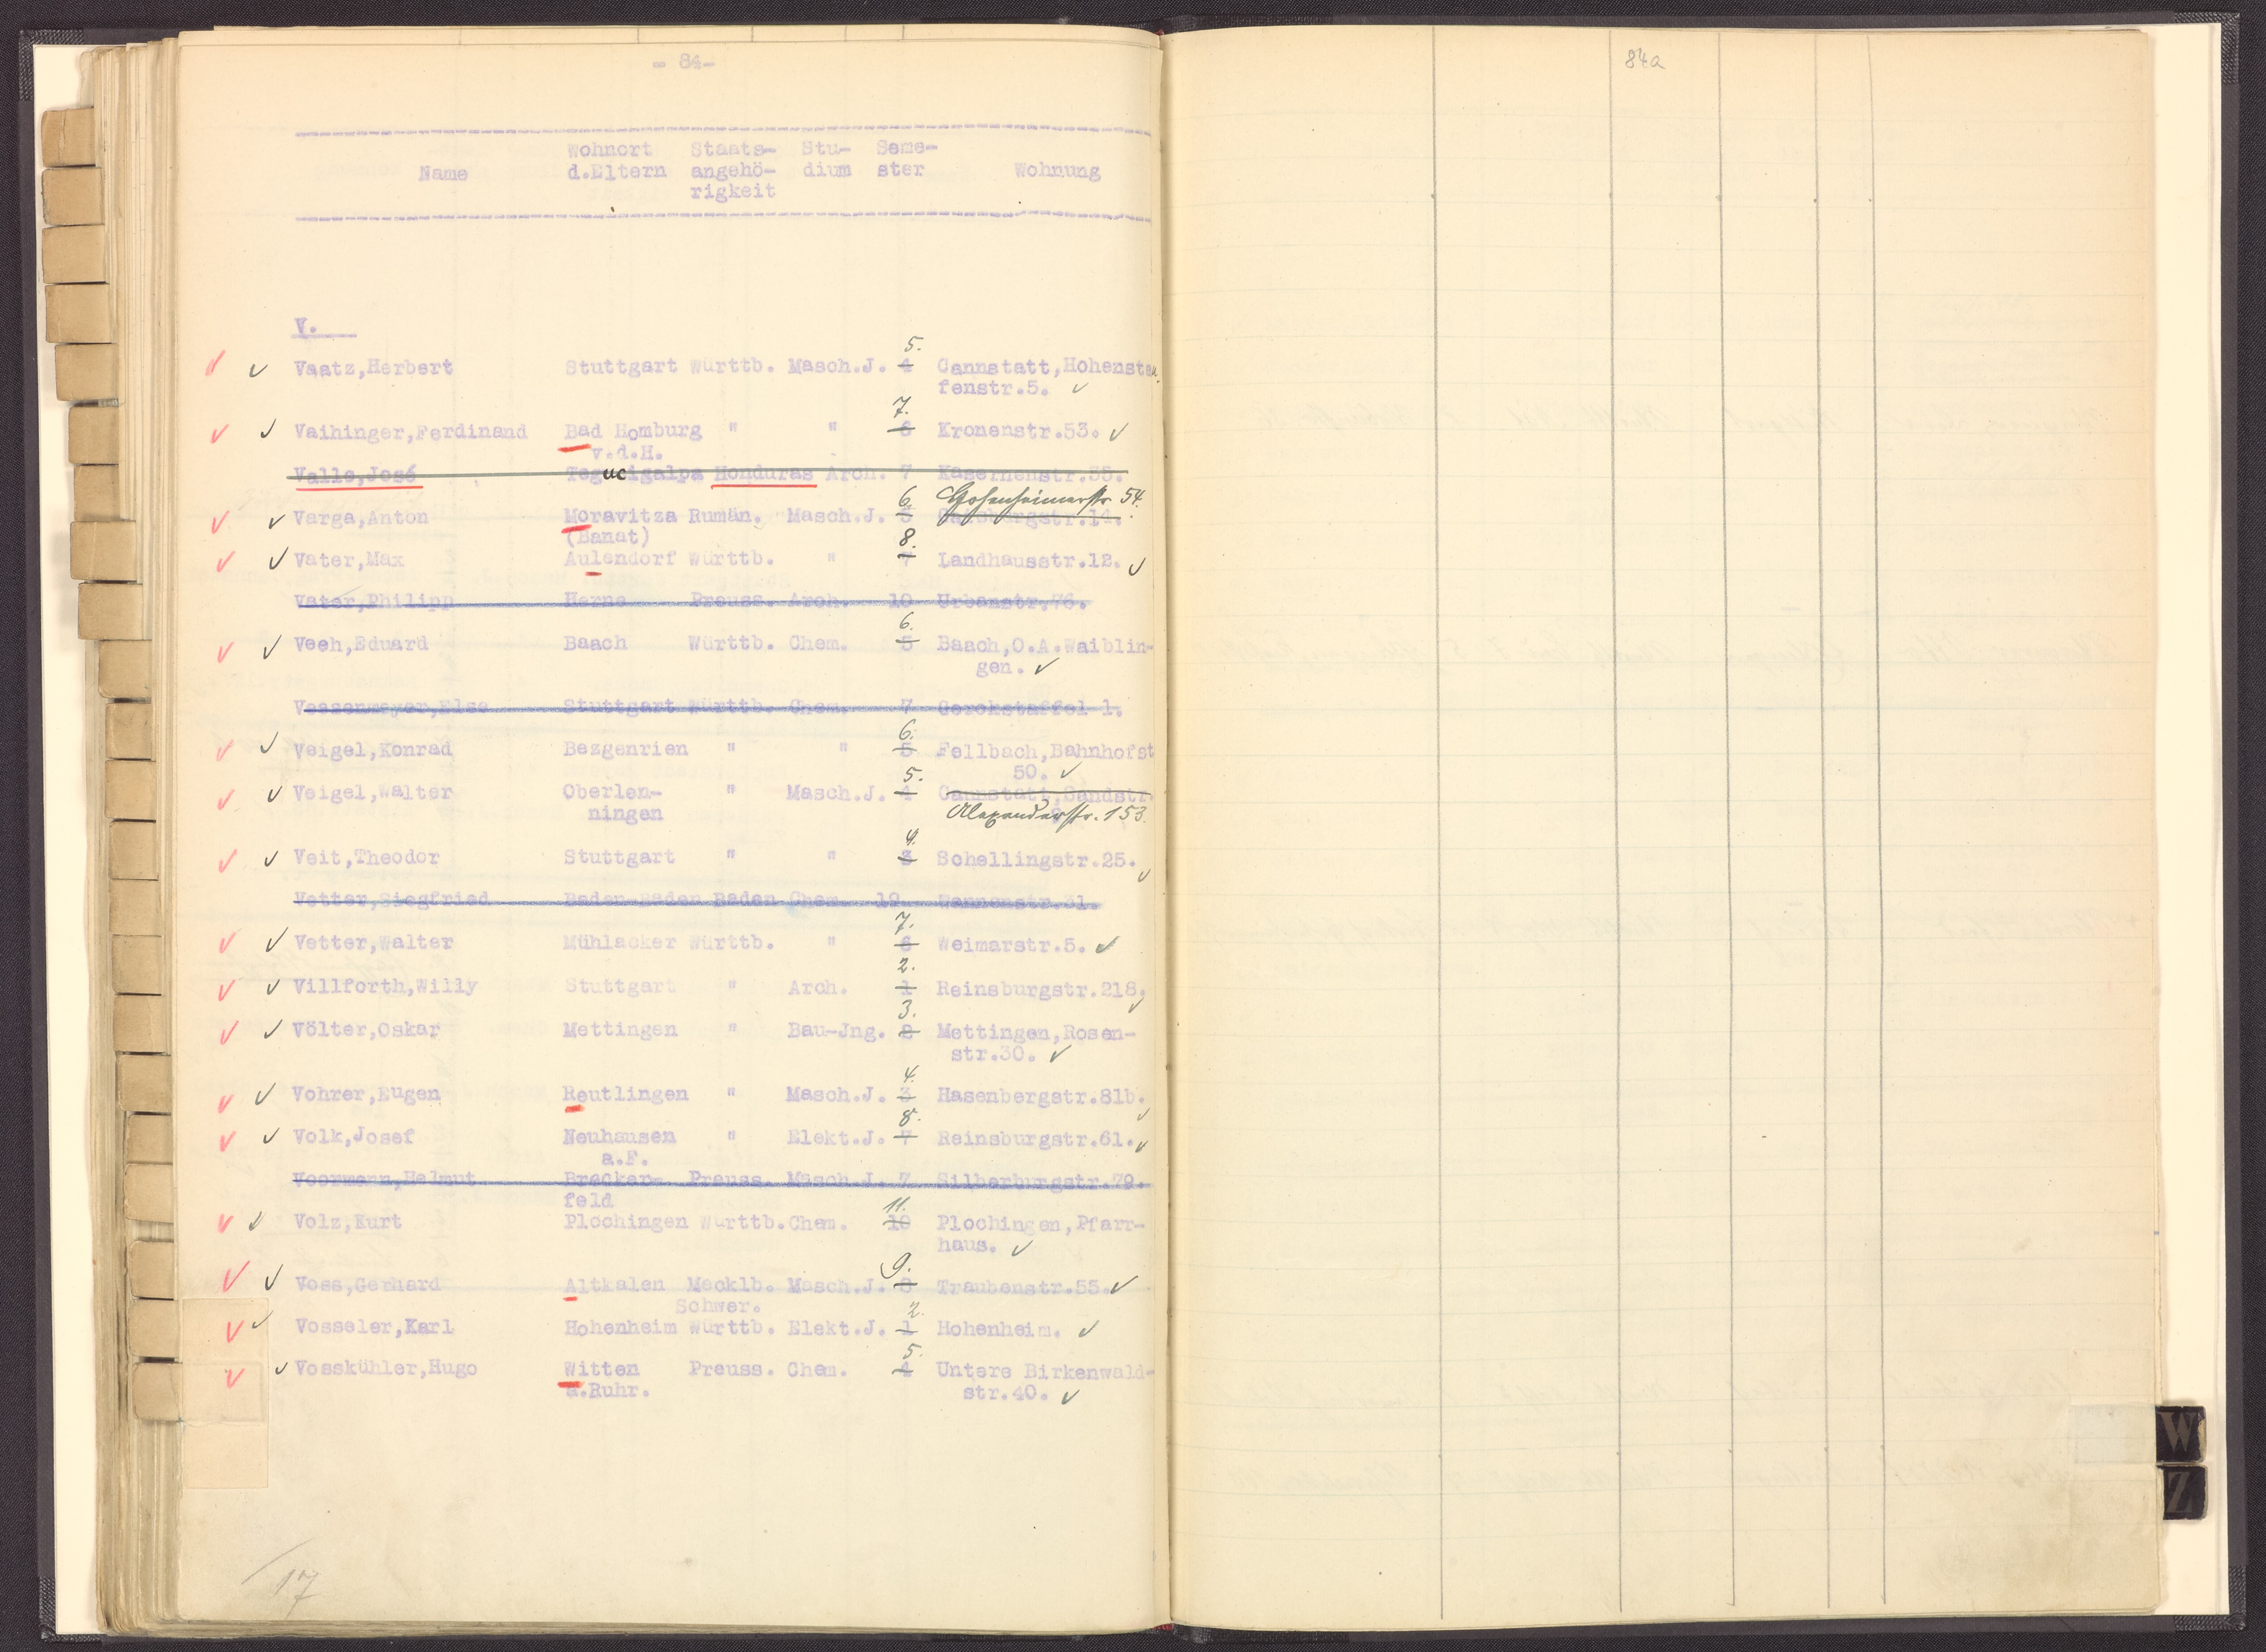 - 84-
84a
Wohnort Staats- Stu- Seme-
Name d.Eltern angehö- dium ster Wohnung
rigkeit
V.
5.
Vaatz,Herbert Stuttgart Württb. Masch.J. 4 Cannstatt,Hohenstau
fenstr.5.
7.
Vaihinger,Ferdinand Bad Homburg " " 6 Kronenstr.53.
v.d.H.
Valle,José Tegucigalpa Honduras Arch. 7 Kasernenstr.35.
6. Hohenheimerstr. 54.
Varga,Anton Moravitza Rumän. Masch.J. 5 Gaisburgstr.14.
(Banat) 8.
Vater,Max Aulendorf Württb. " 7 Landhausstr.12.
Vater,Philipp Herne Preuss. Arch. 10 Urbanstr.76.
6.
Veeh,Eduard Baach Württb. Chem. 5 Baach,O.A.Waiblin-
gen.
Vessenmeyer,Else Stuttgart Württb. Chem. 7 Gerokstaffel 1.
6.
Veigel,Konrad Bezgenrien " " 5 Fellbach,Bahnhofst
5. 50.
Veigel,Walter Oberlen- " Masch.J. 4 Cannstatt,Sandstr.
ningen Alexanderstr. 153.
4.
Veit,Theodor Stuttgart " " 3 Schellingstr.25.
Vetter,Siegfried Baden-Baden Baden Chem. 12 31.
7.
Vetter,Walter Mühlacker Württb. " 6 Weimarstr.5.
2.
Villforth,Willy Stuttgart " Arch. 1 Reinsburgstr.218.
3.
Völter,Oskar Mettingen " Bau-Jng. 2 Mettingen,Rosen-
str.30.
4.
Vohrer,Eugen Reutlingen " Masch.J. 3 Hasenbergstr.81b.
8.
Volk,Josef Neuhausen " Elekt.J. 7 Reinsburgstr.61.
a.F.
Voormann,Helmut Brecker- Preuss. Masch.J. 7 Silberburgstr.79.
feld 11.
Volz,Kurt Plochingen Württb.Chem. 10 Plochingen,Pfarr-
haus.
9.
Voss,Gerhard Altkalen Mecklb. Masch.J. 8 Traubenstr.55.
Schwer. 2.
Vosseler,Karl Hohenheim Württb. Elekt.J. 1 Hohenheim.
5.
Vosskühler,Hugo Witten Preuss. Chem. 4 Untere Birkenwald-
a.Ruhr. str.40.
17
W
Z